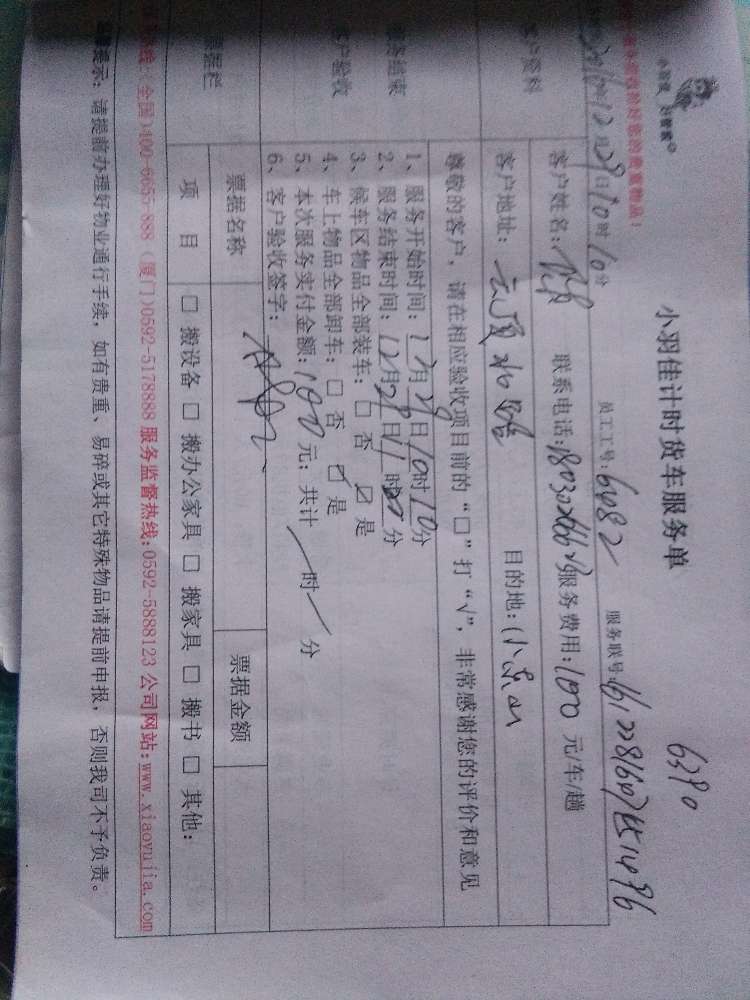 小羽佳 好管家
小羽佳计时货车服务单
6390
12月29日10时10分
员工工号：6482
服务联号：
客户资料
客户姓名：
联系电话：
服务费用：1000元/车/趟
客户地址：云顶
目的地：小东山
尊敬的客户，请在相应验收项目前的“□”打“√”，非常感谢您的评价和意见
服务结束
客户验收
1、服务开始时间：12月29日10时10分
2、服务结束时间：12月29日11时分
3、候车区物品全部装车：□ 否 ☑ 是
4、车上物品全部卸车：□ 否 ☑ 是
5、本次服务实付金额：1000元；共计 / 时 / 分
6、客户验收签字：
票据栏
票据名称
票据金额
项 目
□ 搬设备 □ 搬办公家具 □ 搬家具 □ 搬书 □ 其他：
(全国)400-6055-888 (厦门)0592-5178888 服务监督热线:0592-5888123 公司网站:www.xiaoyujia.com
提示：请提前办理好物业通行手续，如有贵重、易碎或其它特殊物品请提前申报，否则我司不予负责。